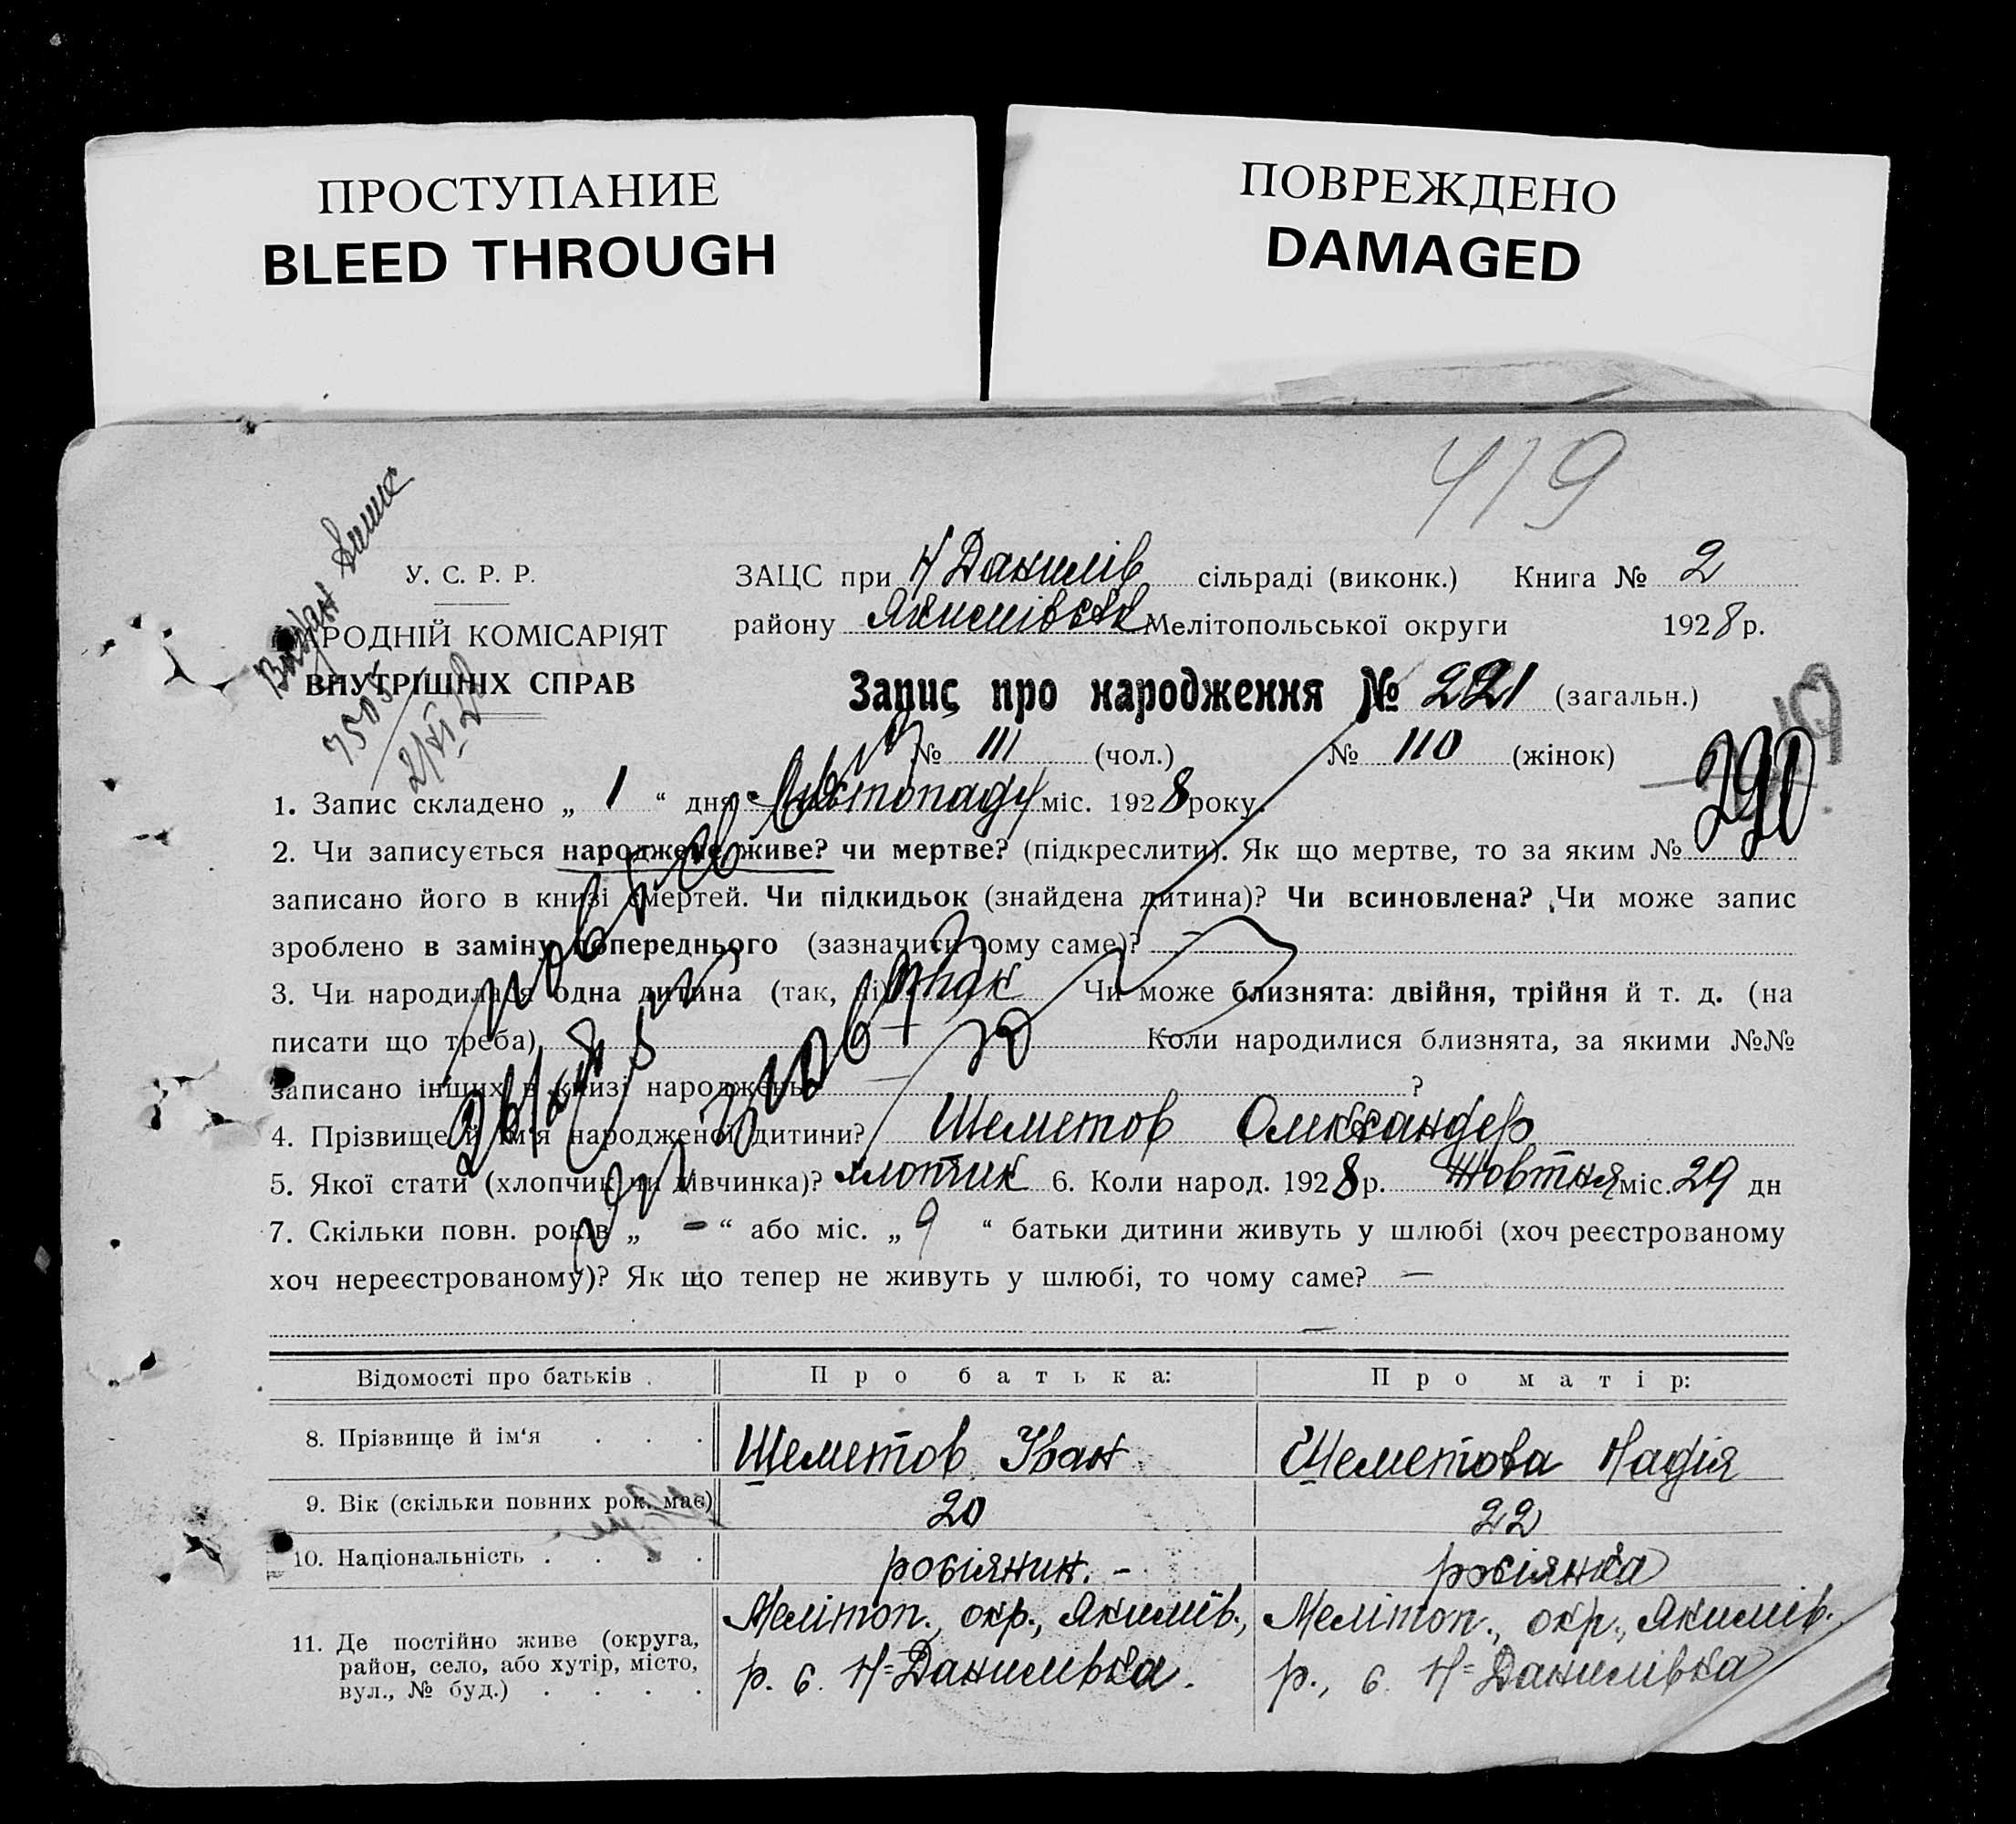 ПРОСТУПАНИЕ
BLEED THROUGH
ПОВРЕЖДЕНО
DAMAGED
419
У. С. Р. Р.
НАРОДНІЙ КОМІСАРІЯТ
ВНУТРІШНІХ СПРАВ
ЗАЦС при Н Данилів сільраді (виконк.) Книга № 2
району Якимівськ Мелітопольської округи 1928 р.
Запис про народження № 221 (загальн.)
№ 111 (чол.) № 110 (жінок)
290
1. Запис складено „ 1 “ дня Листопаду міс. 1928 року.
2. Чи записується народжене живе? чи мертве? (підкреслити). Як що мертве, то за яким №
записано його в книзі смертей. Чи підкидьок (знайдена дитина)? Чи всиновлена? Чи може запис
зроблено в заміну попереднього (зазначити чому саме)? —
3. Чи народилася одна дитина (так, ні) так Чи може близнята: двійня, трійня й т. д. (на
писати що треба) — Коли народилися близнята, за якими №№
записано інших в книзі народжень — ?
4. Прізвище й ім'я народженої дитини? Шеметов Олександер
5. Якої стати (хлопчик чи дівчинка)? хлопчик 6. Коли народ. 1928 р. Жовтня міс. 29 дн
7. Скільки повн. років „ - “ або міс. „ 9 “ батьки дитини живуть у шлюбі (хоч реєстрованому
хоч нереєстрованому)? Як що тепер не живуть у шлюбі, то чому саме? —
—
Відомості про батьків . Про батька: Про матір:
8. Прізвище й ім‘я . . . Шеметов Іван Шеметова Надія
9. Вік (скільки повних рок. має) 20 22
10. Національність . . . . росіянин. - росіянка
11. Де постійно живе (округа, Меліто​п., окр., Якимів., Мелітоп., окр., Якимів.
район, село, або хутір, місто, р. с. Н=Данилівка. р., с. Н=Данилівка
вул., № буд.) . . . .